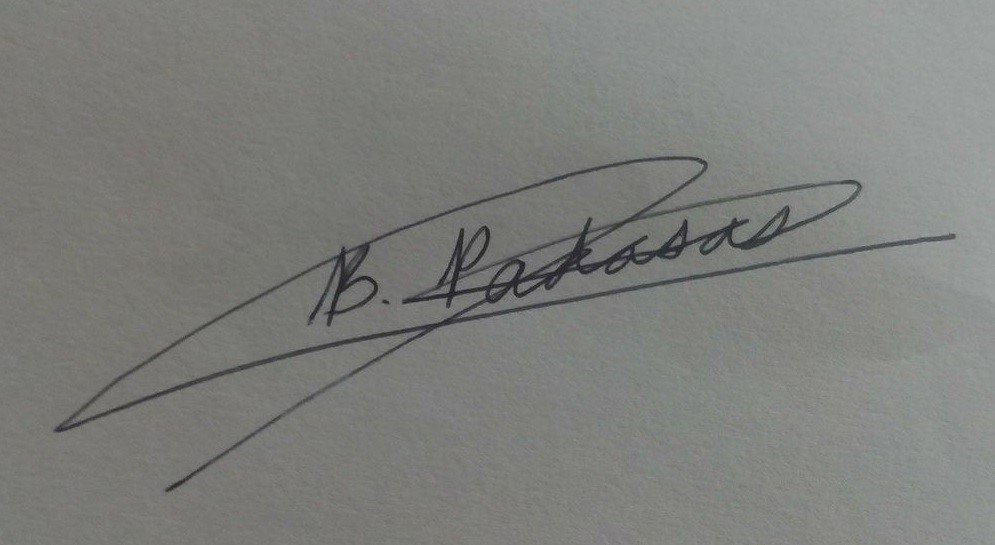 B. Pakasas